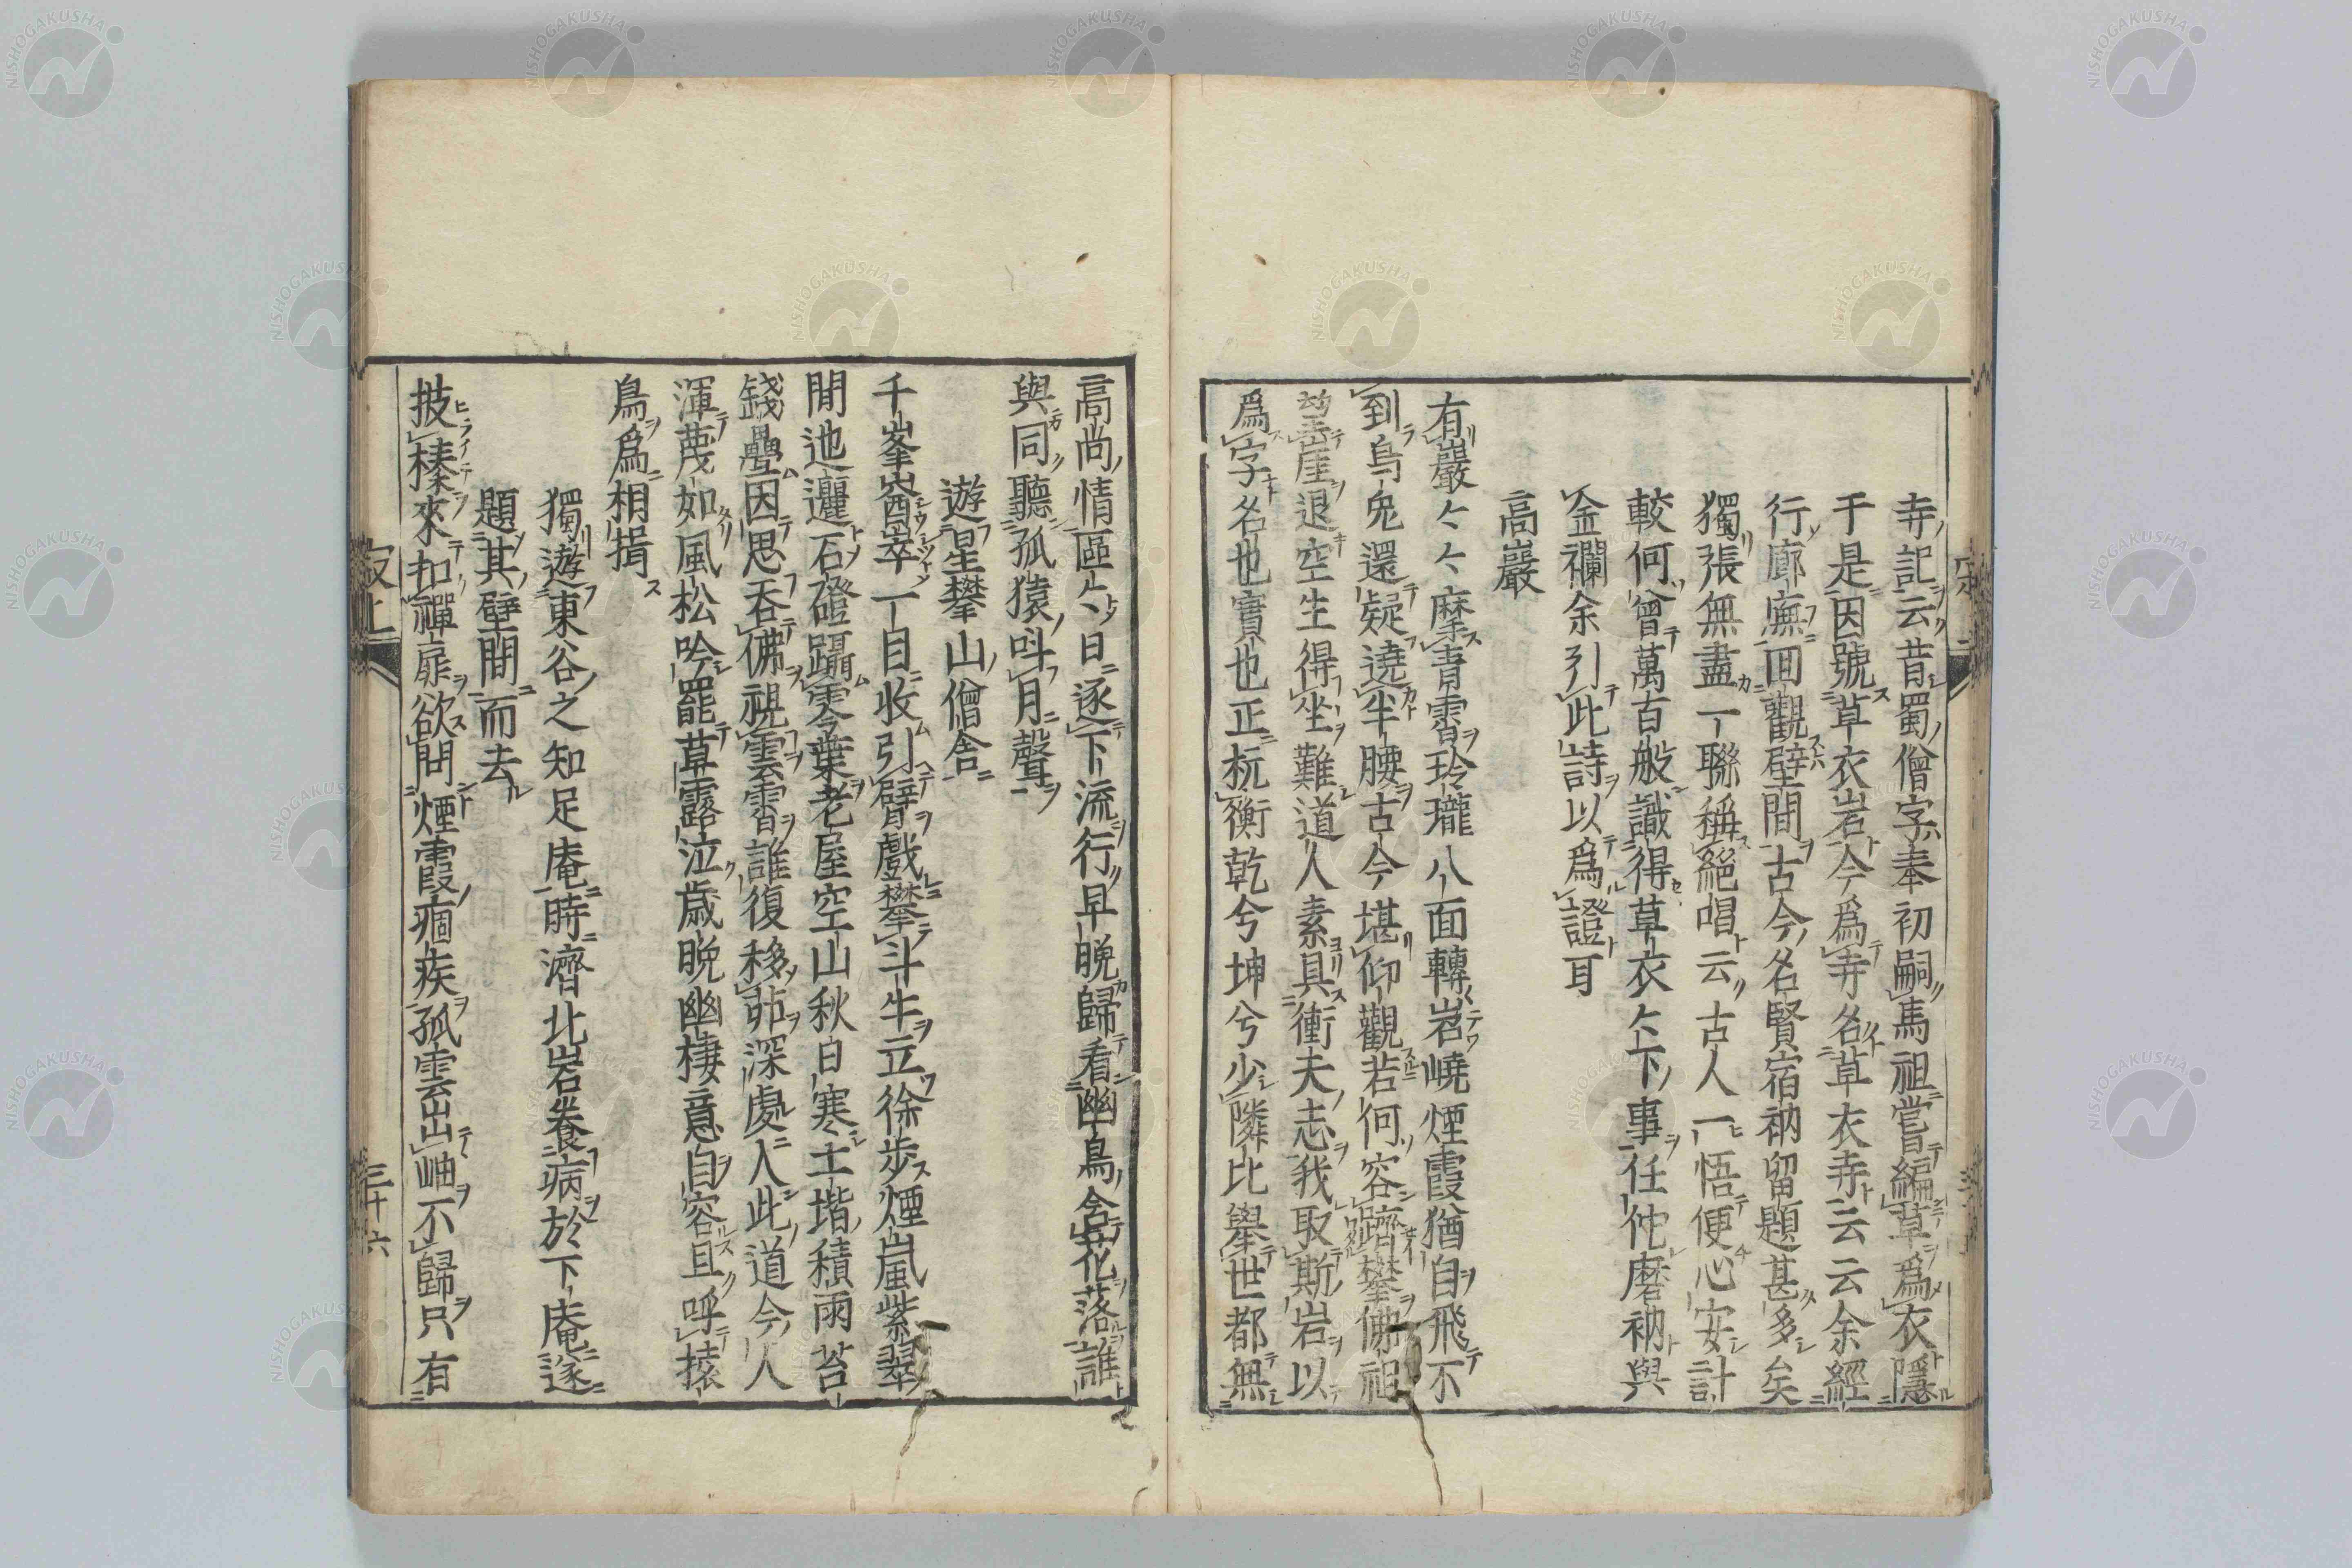 寺記云昔蜀僧字奉初嗣馬祖嘗編草爲衣隱
于是因號草衣岩今爲寺名草衣寺云云余經
行廊廡回觀壁間古今名賢宿衲留題甚多矣
獨張無盡一聯稱絕唱云古人一悟便心安計
較何曾萬百般識得草衣々下事任佗磨衲與
金襴余引此詩以爲證耳
高巖
有巖々々摩青霄玲瓏八面轉岧嶢煙霞猶自飛不
到烏兔還疑遶半腰古今堪仰觀若何容躋攀佛祖
望崖退空生得坐難道人素具衝夫志我取斯岩以
爲字名也實也正杬衡乾兮坤兮少隣比舉世都無
高尚情區々日逐下流行早晩歸看幽鳥含花落誰
與同聽孤猿呌月聲
遊星攀山僧舍
千峯崷崒一目收引臂戲攀斗牛立徐步煙嵐紫翠
間迤邐石磴躡零葉老屋空山秋日寒土堦積雨苔
錢疊因思吞佛視雲霄誰復移茆深處人此道今人
渾蔑如風松吟罷草露泣歲晩幽棲意自容且呼猿
鳥爲相揖
獨遊東谷之知足庵時濟北岩養病於下庵遂
題其壁間而去
披榛來扣禪扉欲問煙霞痼疾孤雲出岫不歸只有
寂上
三十六
NISHOGAKUSHA